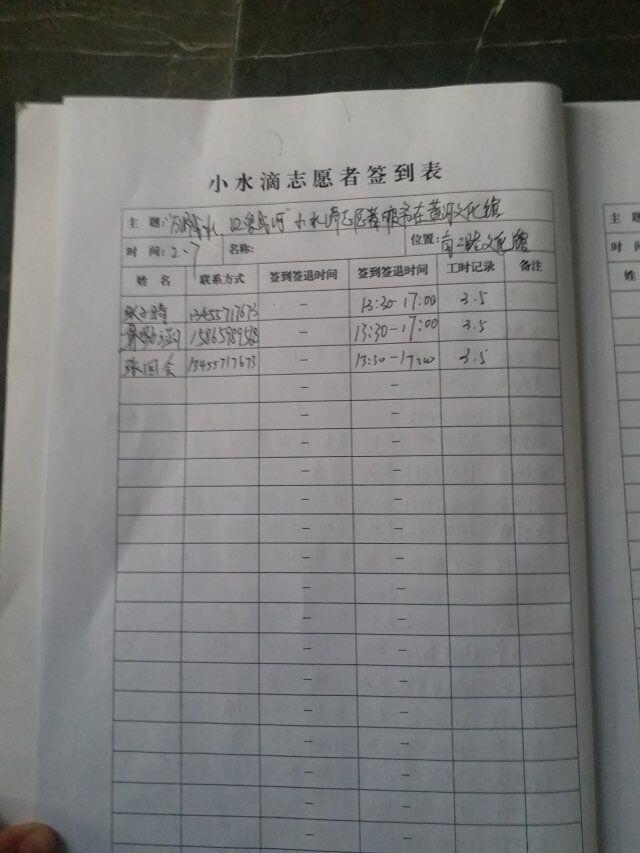 小水滴志愿者签到表
主 题: 小水滴志愿者服务在黄河文化馆
时 间: 2.7 名称: 位置: 文化馆
姓 名 联系方式 签到签退时间 签到签退时间 工时记录 备注
13455717673 – 13:30-17:00 3.5
– 13:30-17:00 3.5
13455717673 – 13:30-17:00 3.5
–  –
–  –
–  –
–  –
–  –
–  –
–  –
–  –
–  –
–  –
–  –
–  –
–  –
–  –
–  –
–  –
主 题
时 间
姓